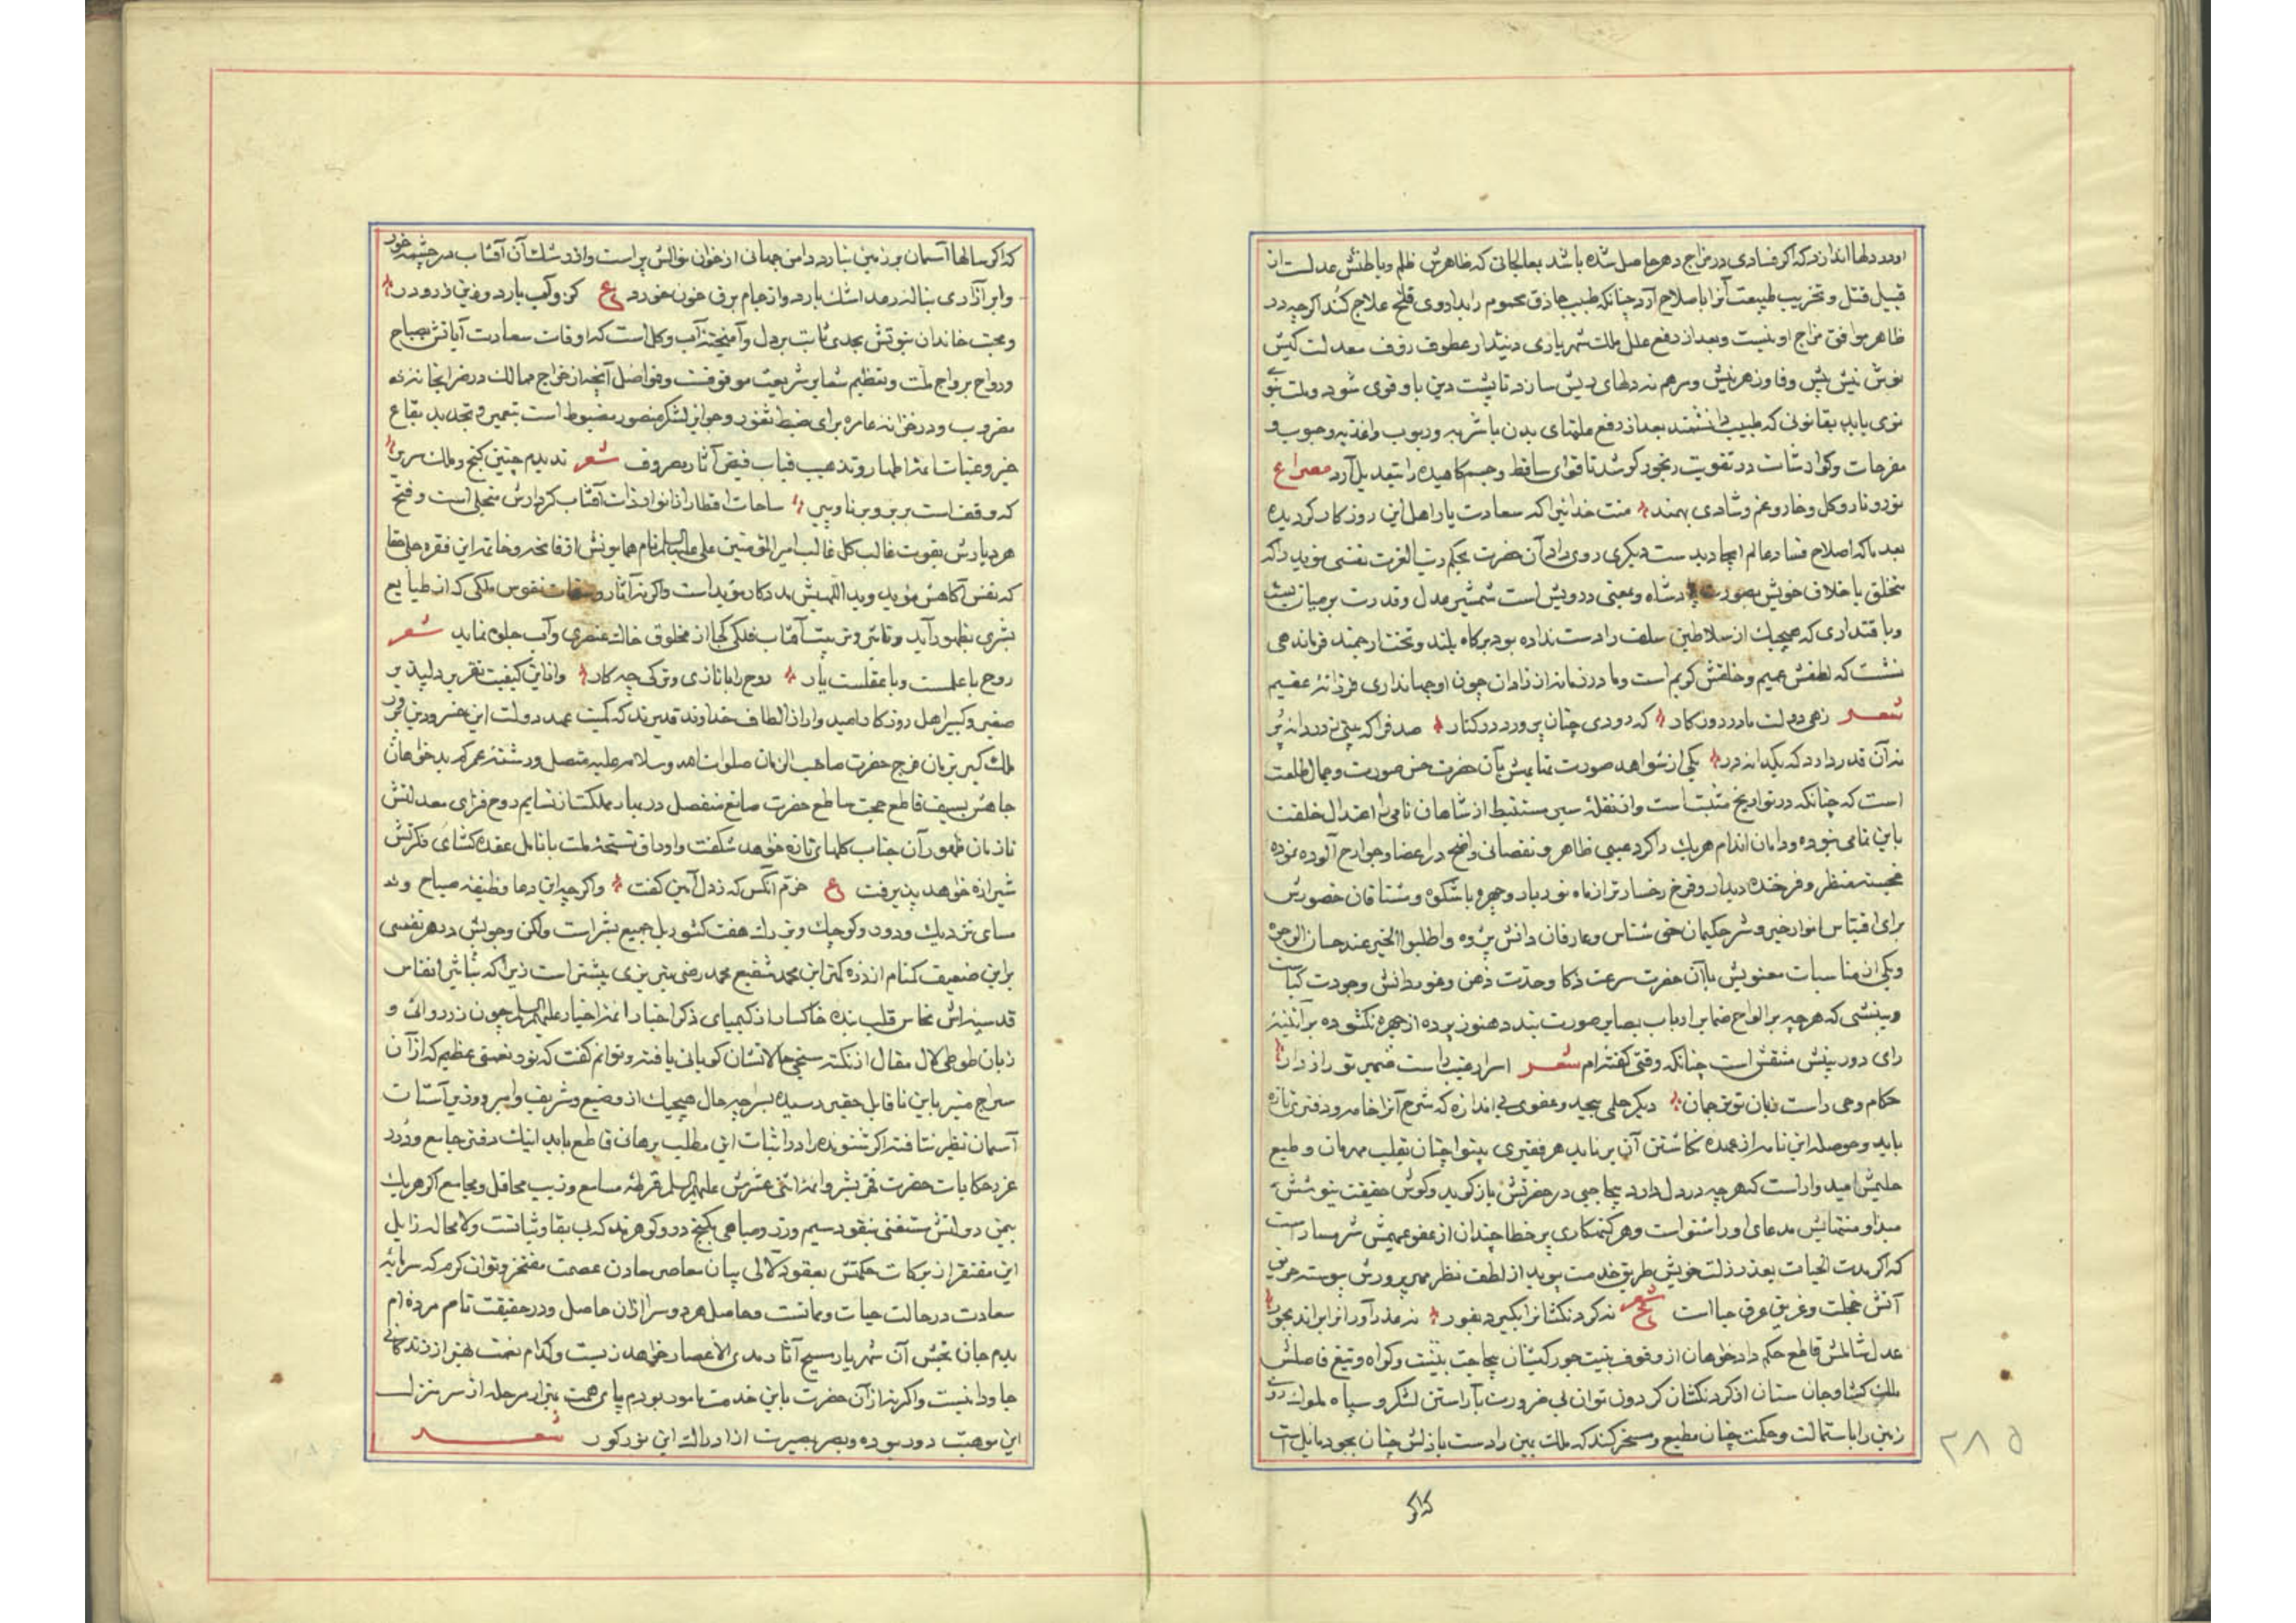 اورد دلها اندازد که اگر فسادی در مزاج دهر حاصل شده باشد بمعالجاتی که ظاهرش ظلم و باطنش عدلست از
قبیل قتل و تخریب طبیعت آنرا باصلاح آرد چنانکه طبیب حاذق محموم را بداروی تلخ علاج کند اگرچه در
ظاهر موافق مزاج او نیست و بعد از دفع علل ملک شهریاری دیندار عطوف رؤف معدلت کیش
نوش نیش پیش وفا و زهر نیش و مرهم نه دلهای ریش سازد تا پشت دین باو قوی شود و ملت نبوی
نوی یابد بقانونی که طبیب دانشمند بعد از دفع علتهای بدن باشربه و ربوب و اغذیه و حبوب و
مفرحات و گوارشات در تقویت رنجور کوشد تا قوای ساقط و جسم کاهیده را بتعدیل آرد مصراع
نور و نار و گل و خار و غم و شادی بهمند منت خدائیرا که سعادت یار اهل این روزگار گردیده
بعد ما که اصلاح فساد عالم ایجاد بدست دیگری روی داد آن حضرت بحکم رب العزت نفسی مؤید را که
متخلق باخلاق خویش بصورت پادشاه و بمعنی درویش است شمشیر عدل و قدرت بر میان بست
و با اقتداری که هیچیک از سلاطین سلف را دست نداده بود بر گاه بلند و تخت ارجمند فرماندهی
نشست که لطفش عمیم و خلقش کریم است و مادر زمانه از زادن چون او جهانداری فرزانه عقیم
شعر زهی دولت مادر روزگار که دری چنان پرورد در کنار صدف را که بینی ز دردانه پر
نه آن قدر دارد که یکدانه در یکی از شواهد صورت نمایش بآن حضرت حسن صورت و جمال طلعت
است که چنانکه در تواریخ مثبت است و از نقله سیر مستنبط از شاهان نامی را اعتدال خلقت
باین تمامی نبوده و دامان اندام هر یک را گرد عیبی ظاهر و نقصانی واضح در اعضا و جوارح آلوده نموده
خجسته منظر و فرخنده دیدار و فرخ رخسار تر از ماه نور بار و چهره باشکوه و مشتاقان حضورش
برای اقتباس انوار خیر و شر حکیمان حق شناس و عارفان دانش پژوه و اطلبوا الخیر عند حسان الوجوه
و یکی از مناسبات معنویش با آن حضرت سرعت ذکا و حدت ذهن و وفور دانش و جودت کیاست
و بینشی که هر چه بر الواح ضمایر ارباب بصایر صورت بندد هنوز پرده از چهره نگشوده بر آئینه
رای دوربینش منقش است چنانکه وقتی گفته‌ام شعر اسرار غیب راست ضمیر تو رازدار
حکام وحی راست زبان تو ترجمان دیگر حلمی بیحد و عفوی بی اندازه که شرح آنرا خامه و دفتری تازه
باید و حوصله این نامه از عهده نگاشتن آن برنیاید هر فقیری بینوا چنان بقلب مهربان و طبع
حلیمش امیدوار است که هر چه در دل دارد بیحاجبی در حضرتش باز گوید و گوش حقیقت نیوشش
مبدا و منتهایش مدعای او را شنواست و هر گنهکاری پر خطا چندان از عفو عمیمش شرمسار است
که اگر مدت الحیات بعذر زلت خویش طریق خدمت پوید از لطف نظر مهر پرورش پیوسته حریق
آتش خجلت و غریق عرق حیا است شعر نه گردنکشانرا بگیرد بفور نه عذرآورانرا براند بجور
عدل شاملش قاطع حکم دادخواهان از وقوف بنیت جور کیشان بیحاجت ببینت و گواه و تیغ فاصلش
ملک گشا و جان ستان از گردنکشان گردون توان بی ضرورت بآراستن لشکر و سپاه ملوک روی
زمین را باستمالت و حکمت چنان مطیع و مسخر کند که ملک یمین را دست باذلش چنان بجود مایل است
که اگر
۲۸۵
که اگر سالها آسمان بر زمین نبارد دامن جهانی از خوان نوالش پر است و از رشک آن آفتاب در چشمه خور
و ابر آزاری بناله رعد اشک بارد و از جام برق خون خورد ع کز و آب بارد و زین زر و در
و محبت خاندان نبوتش بحدی ثابت بر دل و آمیخته آب و گل است که اوقات سعادت آیاتش بصباح
و رواح برواج ملت و تعظیم شعایر شریعت موقوفست و فواضل آنچه از خراج ممالک در ضرابخانه زده
مضروب و در خزانه عامره برای ضبط ثغور و مواجب لشکر منصور مضبوط است بتعمیر و تجدید بقاع
خیر و عتبات ائمه اطهار و تذهیب قباب فیض آثار مصروف شعر ندیدم چنین گنج و ملک سریر
که وقف است بر برنا و پیر ساحات اقطار از انوار ذات آفتاب کردارش متجلی است و فتح
هر دیارش بقوت غالب کل غالب امیر المؤمنین علی علیه السلام نام همایونش از فاتحه و خاتمه این فقره جلی حقا
که نفس آگاهش مؤید و ید اللهیش مددکار مؤید است و اگر نه آثار و صفات نفوس ملکی که از طبایع
بشری بظهور آید و تابش و تربیت آفتاب فلکی کجا از مخلوق خاک عنصری و آب جلوه نماید شعر
روح با علمست و با عقلست یار روح را با تازی و ترکی چه کار و از این کیفیت تقریر دلپذیر
صغیر و کبیر اهل روزگار امیدوار از الطاف خداوند قدیرند که کمیت عهد دولت این خسرو دین پرور
ملک گیر بزمان فرج حضرت صاحب الزمان صلوات الله و سلامه علیه متصل و رشته عمر که بدخواهان
جاهش بسیف قاطع حجت ساطع حضرت صانع منفصل در بهار مملکت از نسایم روح فزای معدلتش
تا زمان ظهور آن جناب گلهای تازه خواهد شکفت و اوراق نسخه ملت بانامل عقده گشای فکرتش
شیرازه خواهد پذیرفت ع خرم آنکس که ز دل آمین گفت و اگرچه این دعا وظیفه صباح و
مسای نزدیک و دور و کوچک و بزرگ هفت کشور بل جمیع بشر است ولکن وجوبش در هر نفسی
بر این ضعیف گمنام از ذره کمتر ابن محمد شفیع محمد رضی تبریزی بیشتر است زیرا که بتأثیر انفاس
قدسیه اش نحاس قلب بنده خاکسار از کیمیای ذکر اخبار ائمه اخیار علیهم السلام چون زر روائی و
زبان طوطی لال مقال از نکته سنجی حالاتشان گویائی یافته و توانم گفت که نور نعمتی عظیم که از آن
سراج منیر باین ناقابل حقیر رسیده بسراچه حال هیچیک از وضیع و شریف و امیر و وزیر آستان
آسمان نظیر نتافته اگر شنونده را در اثبات این مطلب برهانی قاطع باید اینک دفتر جامع و درر
غرر حکایات حضرت فخر بشر و ائمه اثنی عشرش علیهم السلام قرطه مسامع و زیب محافل و مجامع اگر هر یک
بیمن دولتش مستغنی بنقود سیم و زر و مباهی بگنج در و گوهرند که بی بقا و ثباتست و لامحاله زایل
این مفتقر از برکات حکمتش بعقود لآلی بیان معاصر معادن عصمت مفتخر و توانگرم که سرمایه
سعادت در حالت حیات و مماتست و حاصل هر دو سرا از آن حاصل و در حقیقت نام مرده‌ام
بدم جان بخش آن شهریار مسیح آثار مدی الاعصار خواهد زیست و کدام نعمت بهتر از زندگانی
جاودانیست و اگر نه از آن حضرت باین خدمت مامور بودم پای همت بهزار مرحله از سر منزل
این موهبت دور بوده و بصر بصیرت از ادراک این نور کور شعر